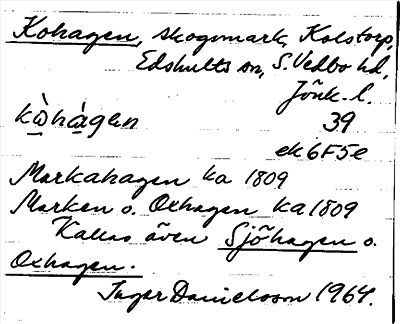 Kohagen, skogsmark, Kolstorp,
Edshults sn, S. Vedbo hd,
Jönk. l.
kò̠hà̠gen 39
ek 6F5e
Markahagen ka 1809
Marken o. Oxhagen ka 1809
Kallas även Sjöhagen o.
Oxhagen.
Inger Danielsson 1964.